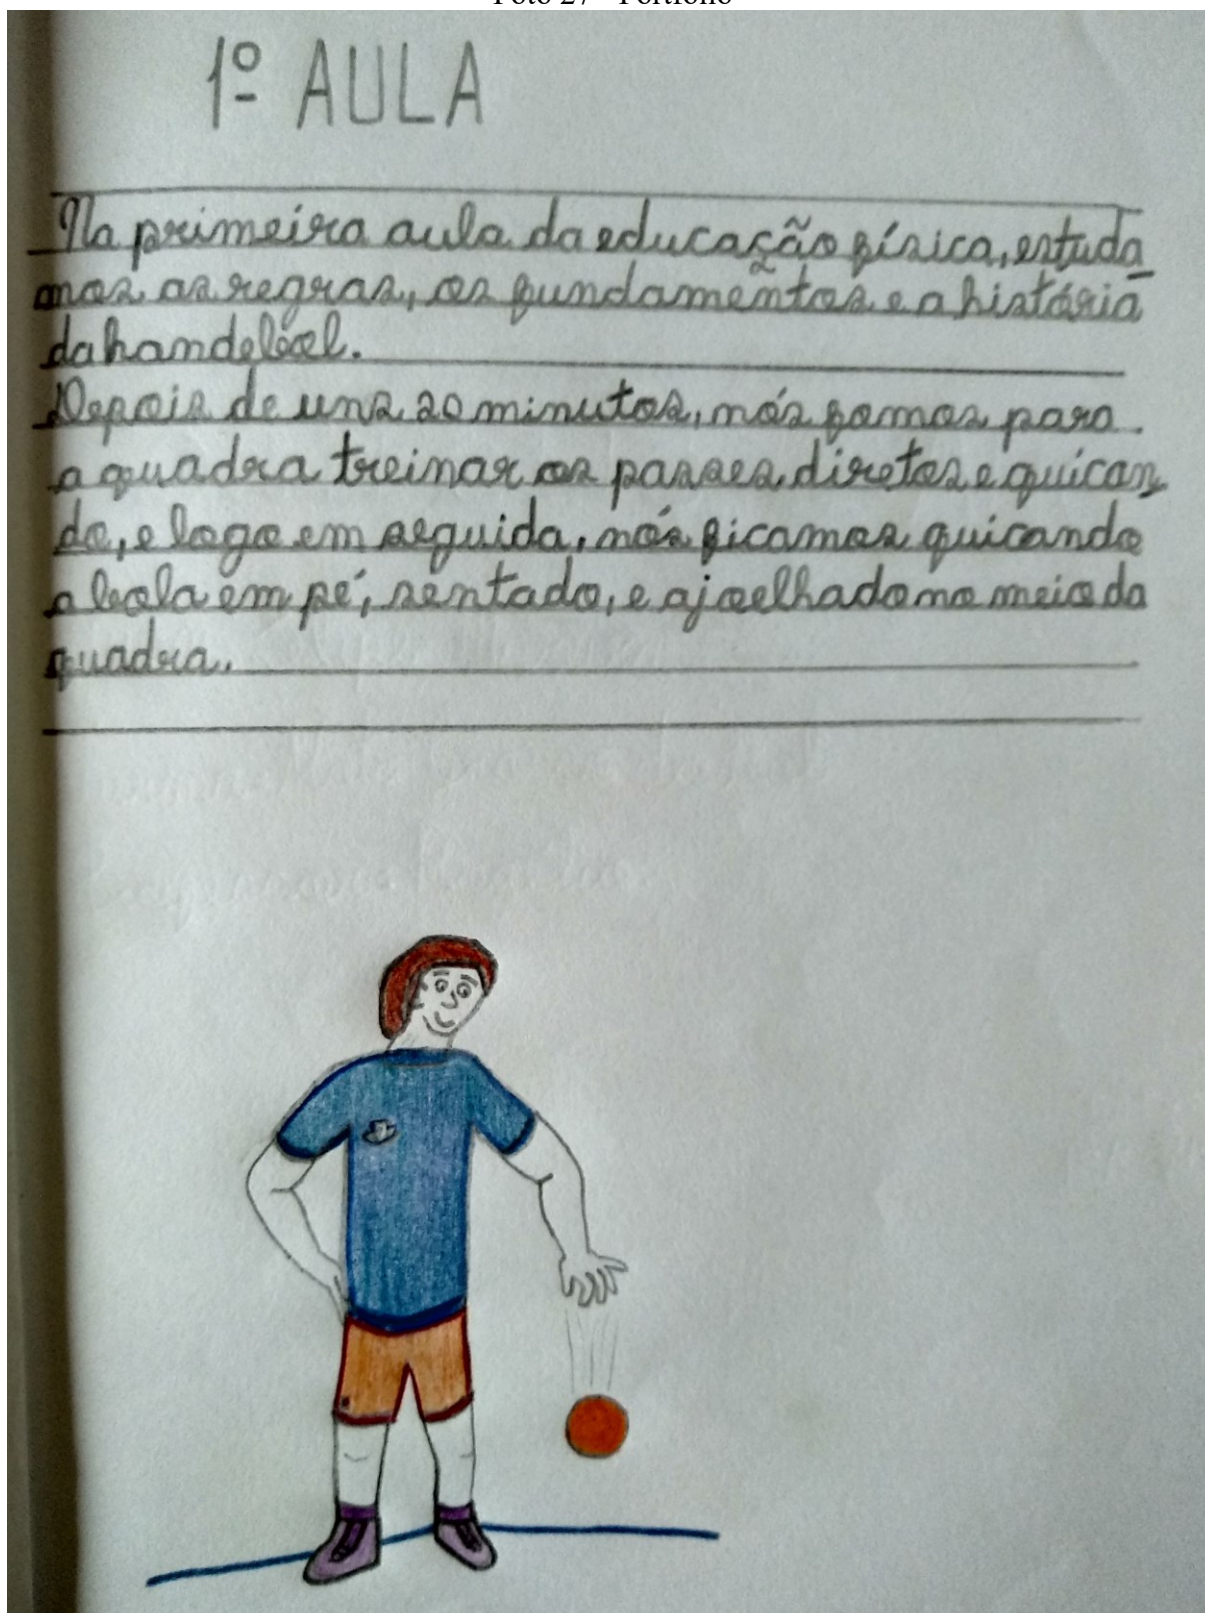 Foto 27 - Portfólio
1º AULA
Na primeira aula da educação física, estuda
mos as regras, os fundamentos e a história
da handebol.
Depois de uns 20 minutos, nós fomos para
a quadra treinar os passes diretos e quican
do, e logo em seguida, nós ficamos quicando
a bola em pé, sentado, e ajoelhado no meio da
quadra.